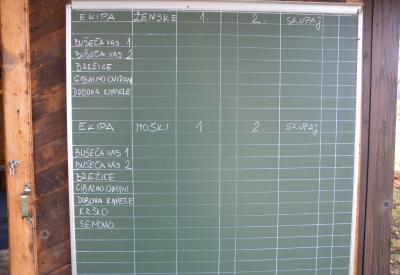 EKIPA ŽENSKE 1. 2. SKUPAJ
BUŠEČA VAS 1
BUŠEČA VAS 2
BREŽICE
GIBALNO OVIRANI
DOBOVA KAPELE
EKIPA MOŠKI 1 2. SKUPAJ
BUŠEČA VAS 1
BUŠEČA VAS 2
BREŽICE
GIBALNO OVIRANI
DOBOVA KAPELE
KRŠKO
SENOVO